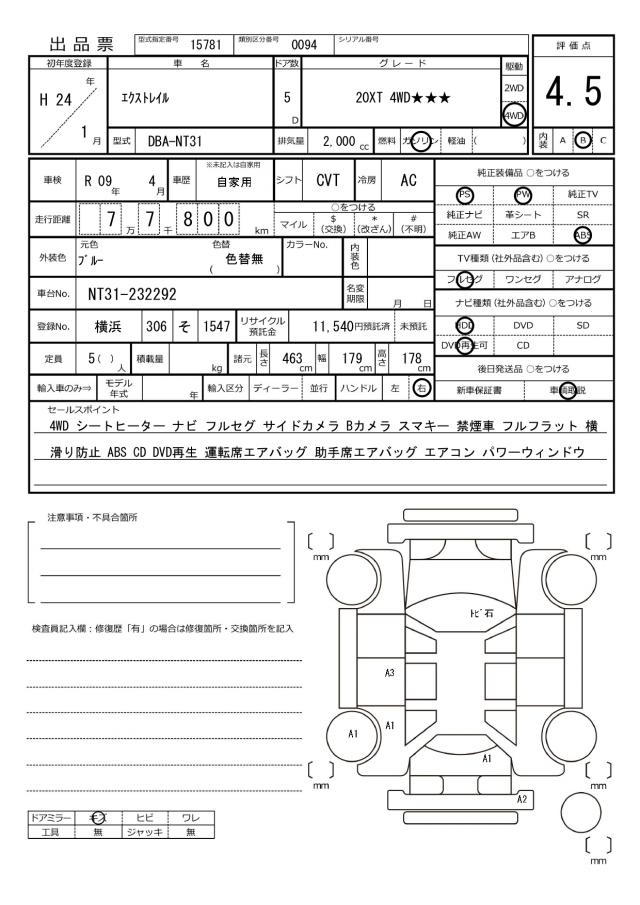 出品票 型式指定番号 15781 類別区分番号 0094 シリアル番号
初年度登録 車名 ドア数 グレード 駆動 評価点
H 24 年 1 月 エクストレイル 5 D 20XT 4WD★★★ 2WD 4WD 4.5
型式 DBA-NT31 排気量 2,000 cc 燃料 ガソリン 軽油 ( ) 内装 A B C
車検 R 09 年 4 月 車歴 ※未記入は自家用 自家用 シフト CVT 冷房 AC
走行距離 7 万 7 千 8 0 0 km ○をつける マイル $ (交換) * (改ざん) # (不明)
外装色 元色 ブルー 色替 ( 色替無 ) カラーNo. 内装色
車台No. NT31-232292 名変期限 月 日
登録No. 横浜 306 そ 1547 リサイクル預託金 11,540円預託済 未預託
定員 5 ( ) 人 積載量 kg 諸元 長さ 463 cm 幅 179 cm 高さ 178 cm
輸入車のみ⇒ モデル年式 年 輸入区分 ディーラー 並行 ハンドル 左 右
純正装備品 ○をつける
PS PW 純正TV
純正ナビ 革シート SR
純正AW エアB ABS
TV種類 (社外品含む) ○をつける
フルセグ ワンセグ アナログ
ナビ種類 (社外品含む) ○をつける
HDD DVD SD
DVD再生可 CD
後日発送品 ○をつける
新車保証書 車輌取説
セールスポイント
4WD シートヒーター ナビ フルセグ サイドカメラ Bカメラ スマキー 禁煙車 フルフラット 横
滑り防止 ABS CD DVD再生 運転席エアバッグ 助手席エアバッグ エアコン パワーウィンドウ
注意事項・不具合箇所
検査員記入欄：修復歴「有」の場合は修復箇所・交換箇所を記入
ドアミラー キズ ヒビ ワレ
工具 無 ジャッキ 無
mm mm
トビ石
A3
A1 A1
A1
mm mm
A2
mm